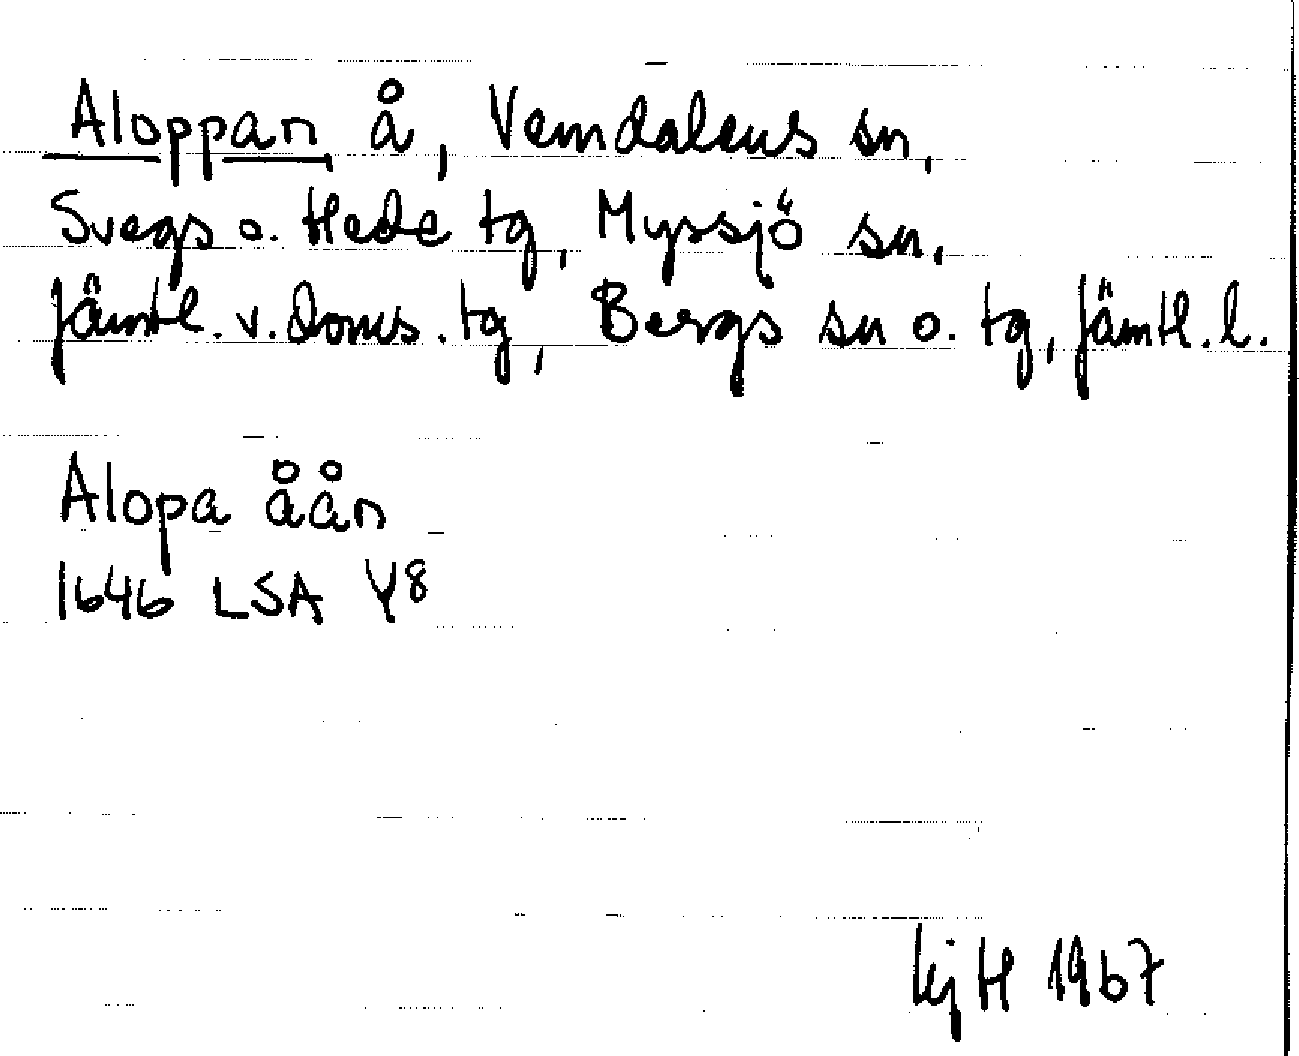 Aloppan å, Vemdalens sn,
Svegs o. Hede tg, Myssjö sn,
Jämtl. v. doms. tg, Bergs sn o. tg, Jämtl. l.
Alopa åån
1646 LSA Y8
KjH 1967